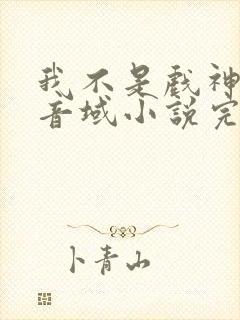 我不是戲神
音域小說完
卜青山